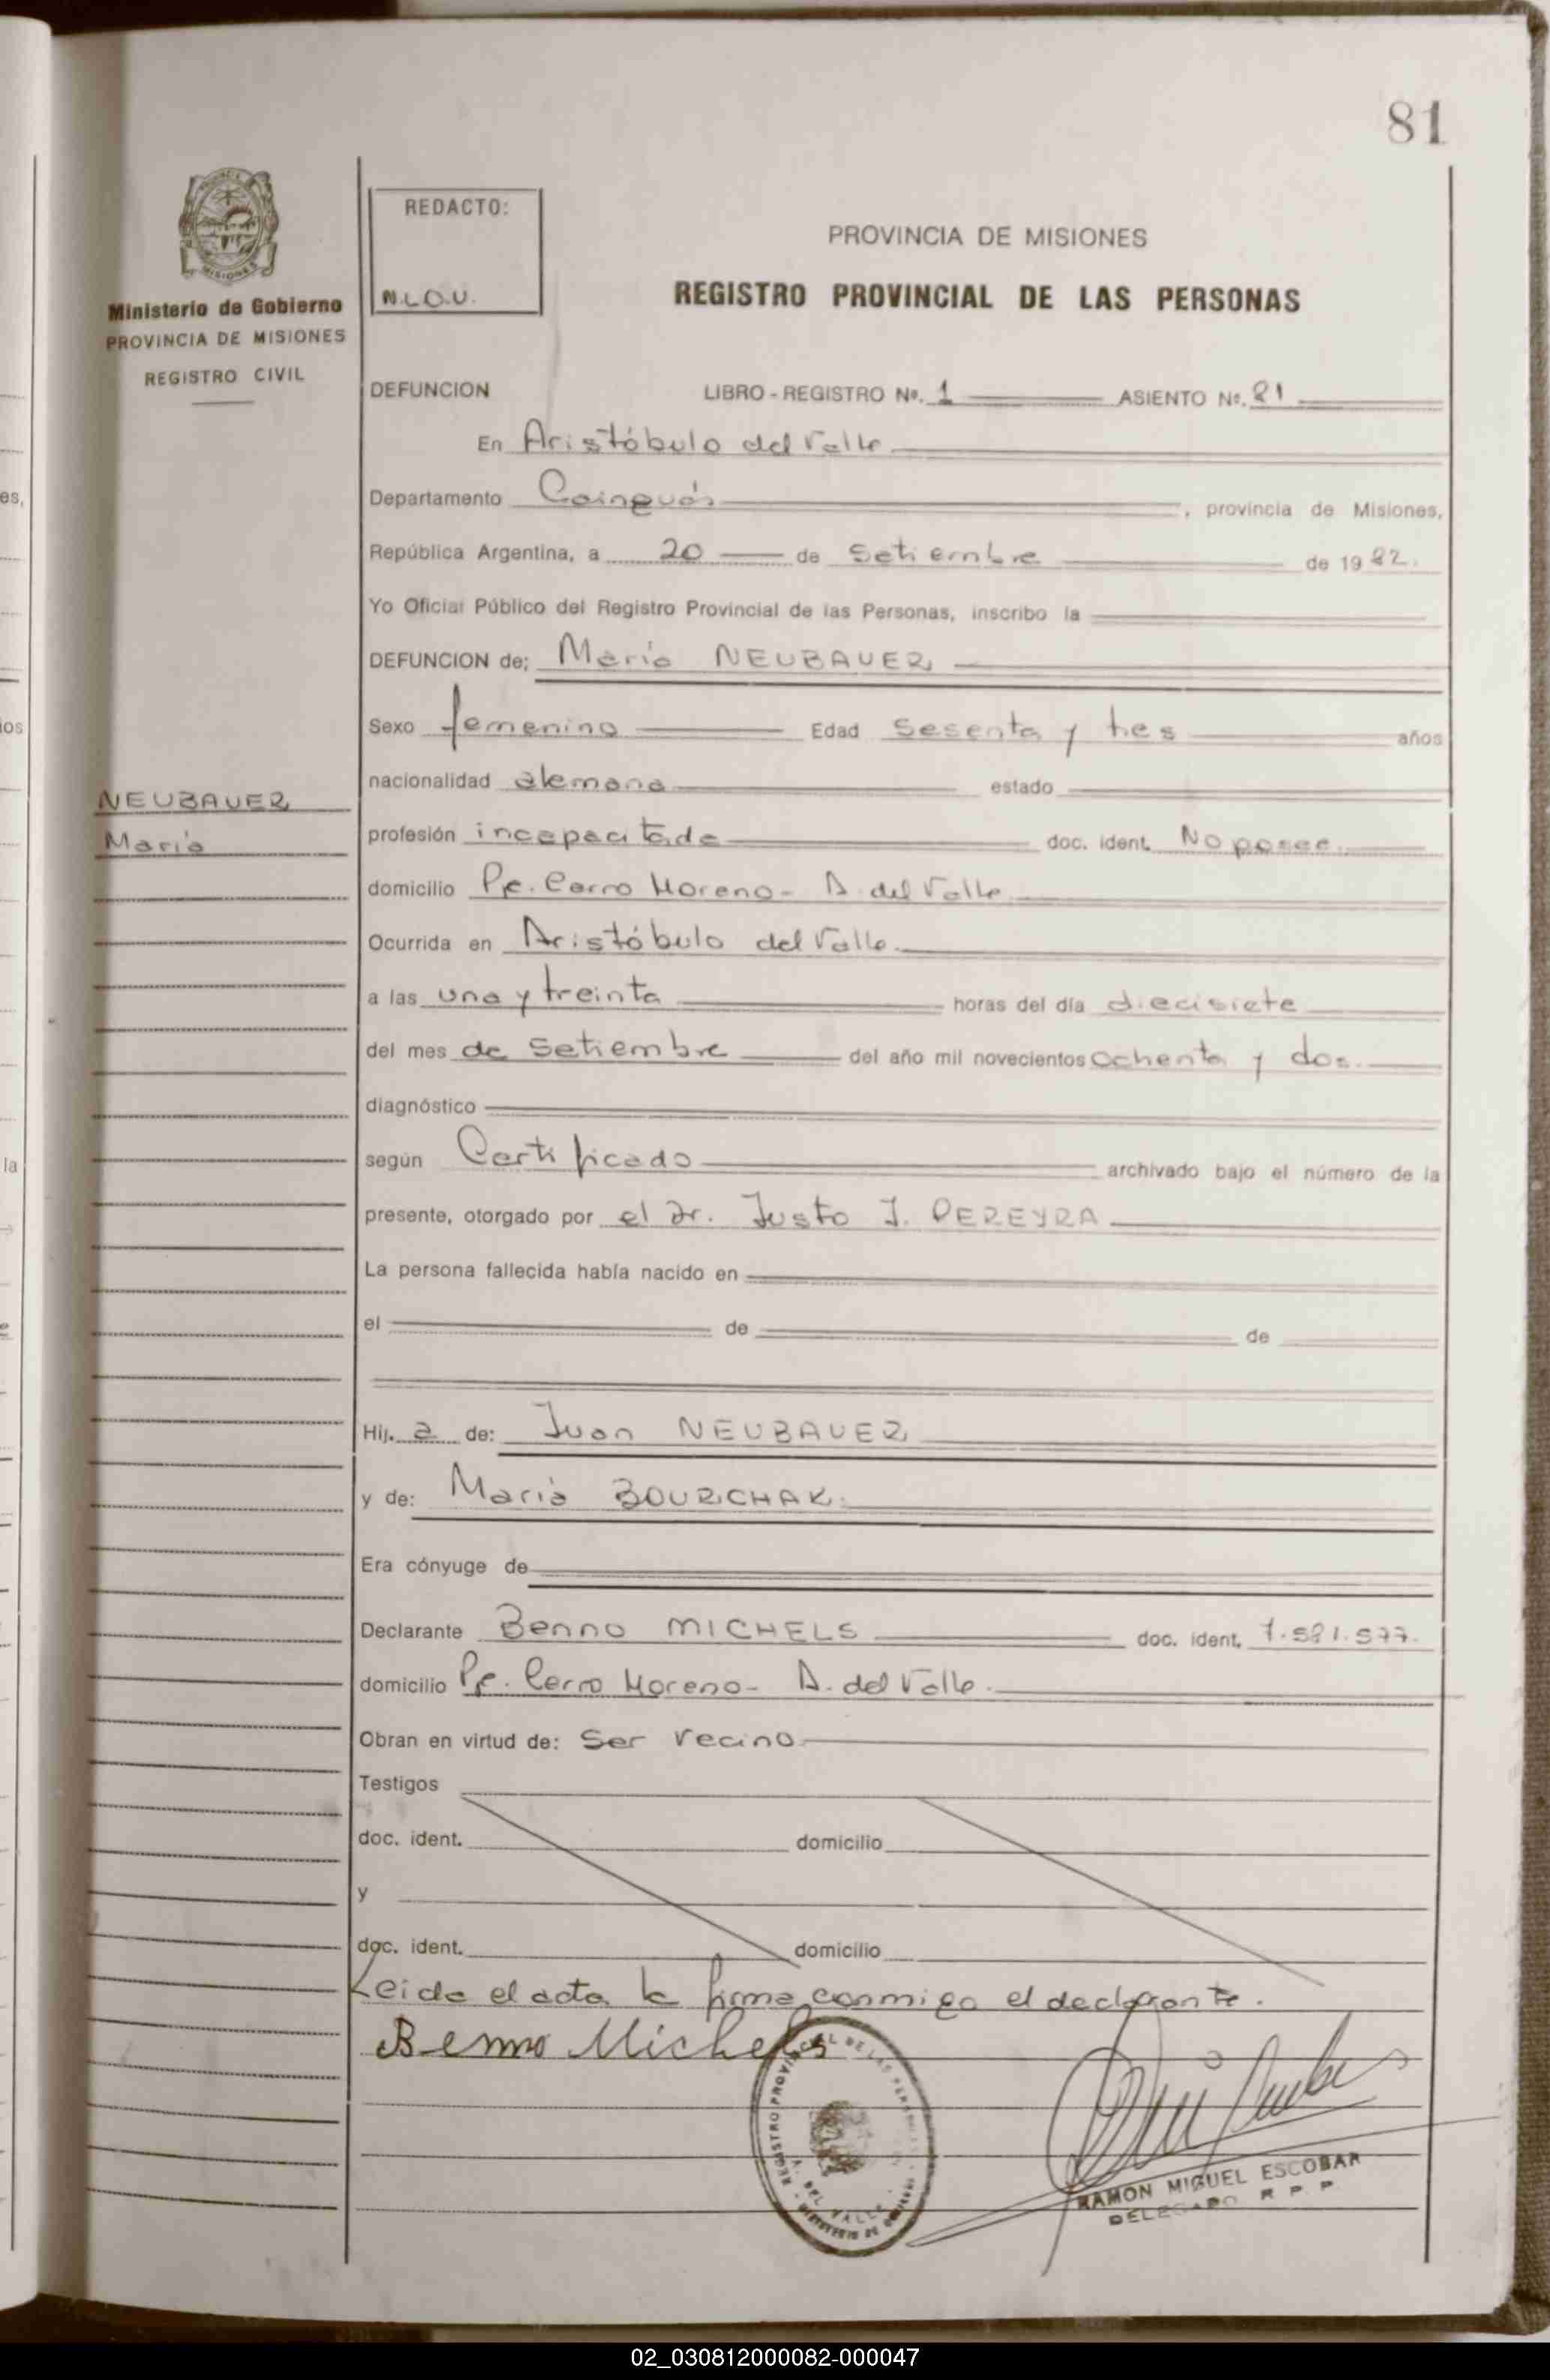 81
MISIONES
Ministerio de Gobierno
PROVINCIA DE MISIONES
REGISTRO CIVIL
REDACTO:
N.L.O.U.
PROVINCIA DE MISIONES
REGISTRO PROVINCIAL DE LAS PERSONAS
DEFUNCION LIBRO - REGISTRO Nº. 1 ASIENTO Nº. 81
En Aristóbulo del Valle
Departamento Cainguás, provincia de Misiones,
República Argentina, a 20 de Setiembre de 1982.
Yo Oficial Público del Registro Provincial de las Personas, inscribo la
DEFUNCION de: María NEUBAUER
Sexo femenino Edad sesenta y tres años
nacionalidad alemana estado
NEUBAUER
María
profesión incapacitada doc. ident. No posee.
domicilio Pje. Cerro Moreno - A. del Valle
Ocurrida en Aristóbulo del Valle.
a las una y treinta horas del día diecisiete
del mes de Setiembre del año mil novecientos ochenta y dos.
diagnóstico
según Certificado archivado bajo el número de la
presente, otorgado por el Dr. Justo J. PEREYRA
La persona fallecida había nacido en
el de de
Hij. a de: Juan NEUBAUER
y de: María BOURCHAK.
Era cónyuge de
Declarante Benno MICHELS doc. ident. 7.581.577.
domicilio Pje. Cerro Moreno - A. del Valle.
Obran en virtud de: Ser vecino
Testigos
doc. ident. domicilio
y
doc. ident. domicilio
Leída el acta la firma conmigo el declarante.
Benno Michels
REGISTRO PROVINCIAL DE LAS PERSONAS
A. DEL VALLE
RAMON MIGUEL ESCOBAR
DELEGADO R. P. P.
es,
ios
la
02_030812000082-000047